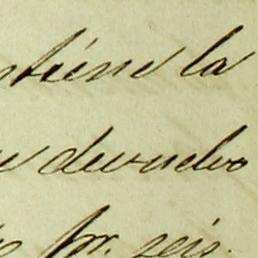 ntiene la
e devuelvo
pr. seis.